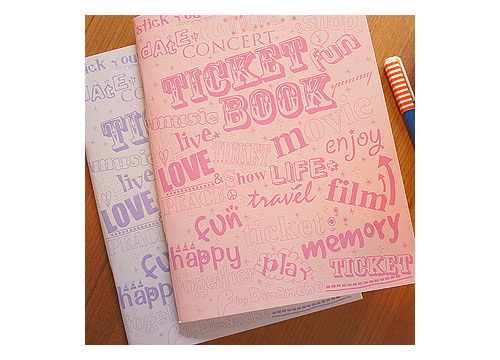 stick you
date CONCERT
TICKET fun
BOOK yummy
music movie
live enjoy
LOVE TICKET
& show LIFE
PEACE travel film
fun ticket
happy memory
play TICKET
together
by Dimanche
stick you
date
TI
music
live
LOVE
PEACE
fun
happy
together
by Dimanche